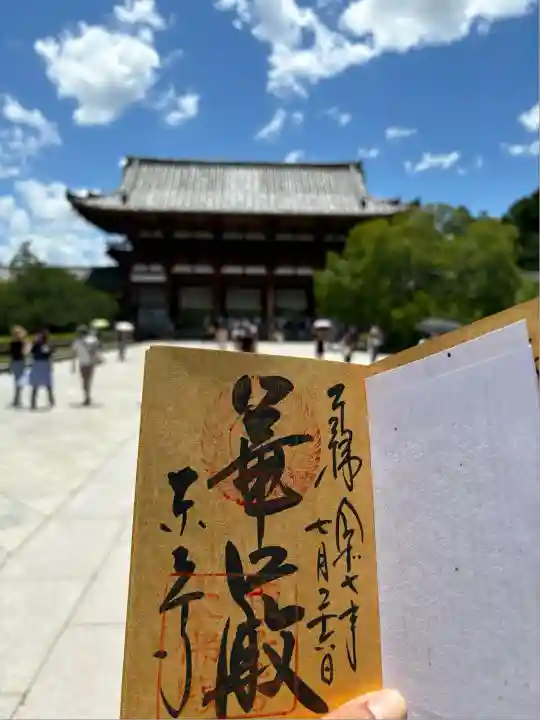 奉拝 令和七年
七月二十六日
華厳
東大寺